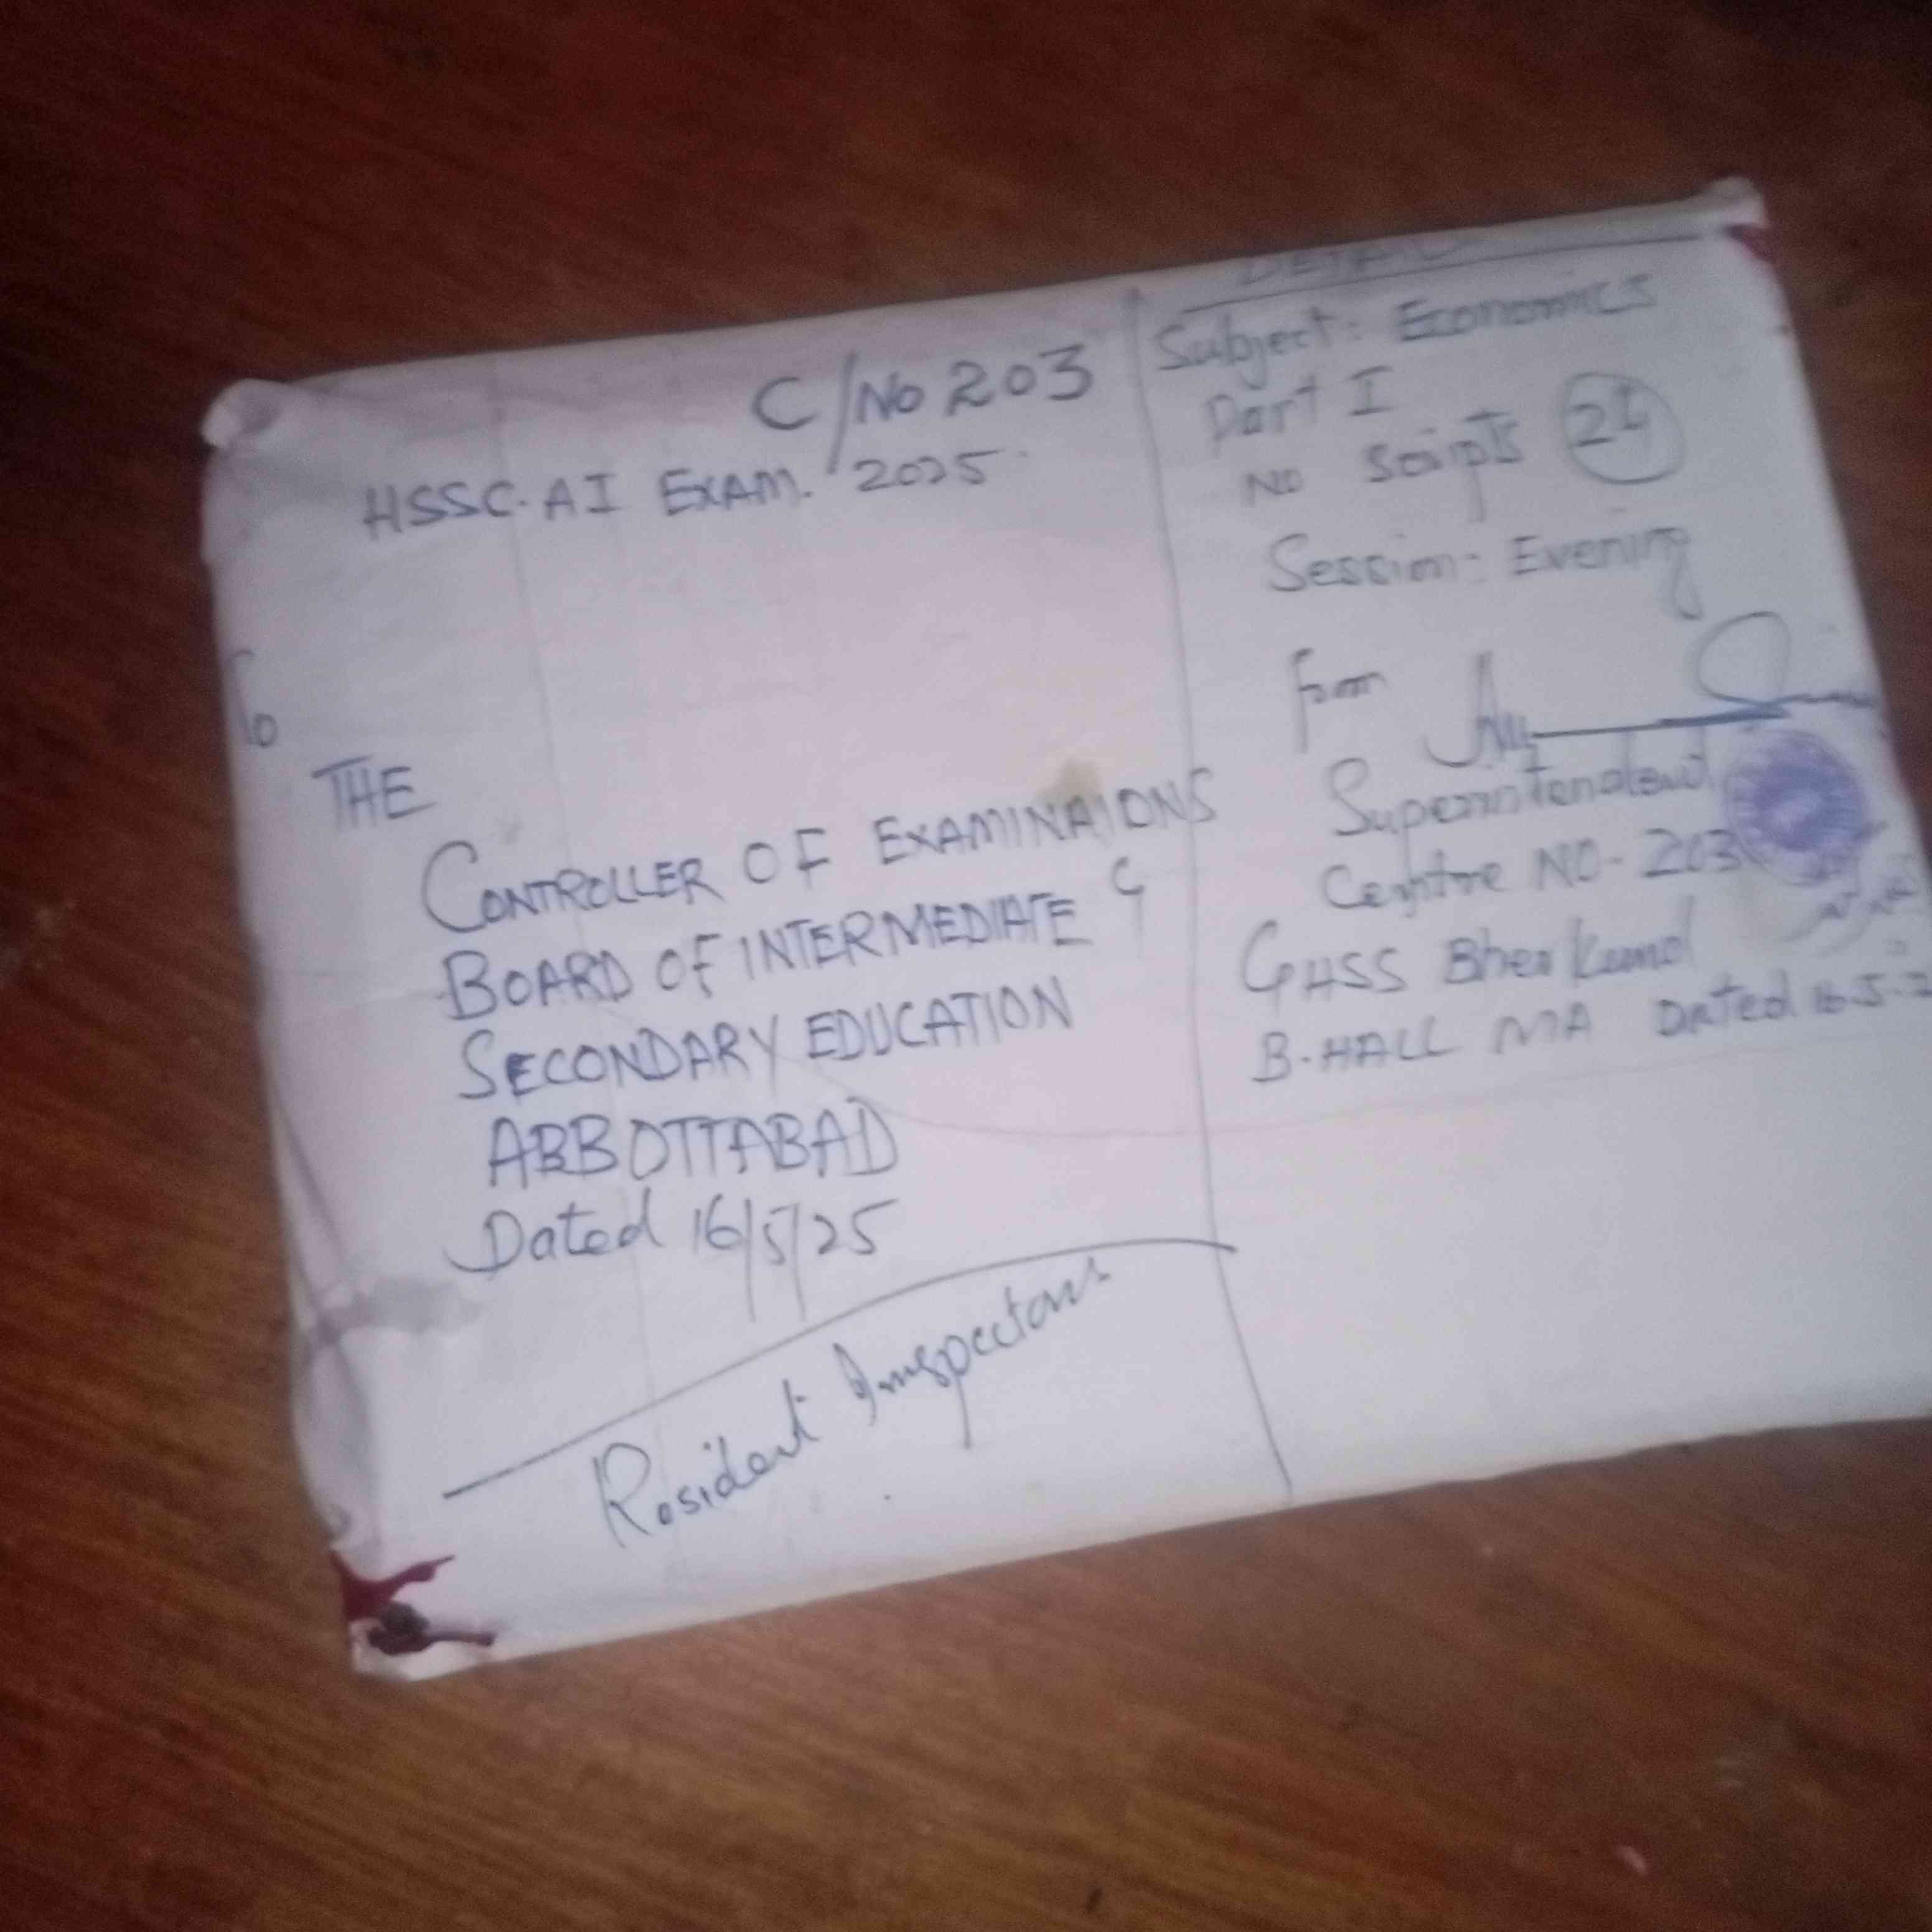 C/No 203
HSSC.AI EXAM. 2025
To
THE
CONTROLLER OF EXAMINAIONS
BOARD OF INTERMEDIATE &
SECONDARY EDUCATION
ABBOTTABAD
Dated 16/5/25
Resident Inspector
DETAIL
Subject: Economics
Part I
No Scripts
Session: Evening
From
Superintendent
Centre NO- 203
GHSS Bherkund
B-HALL MA Dated 16.5.2